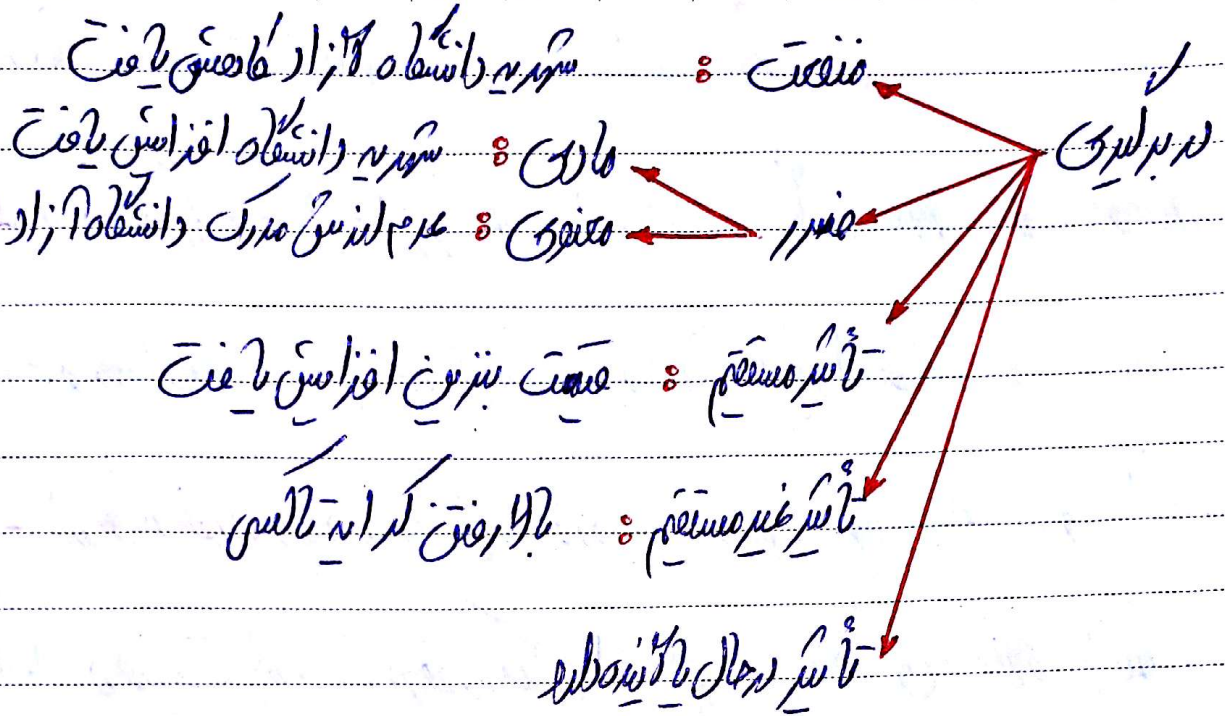 منفعت : شهریه دانشگاه آزاد کاهش یافت
در برگیری
مادی : شهریه دانشگاه افزایش یافت
ضرر
معنوی : عدم ارزش مدرک دانشگاه آزاد
تأثیر مستقیم : قیمت بنزین افزایش یافت
تأثیر غیرمستقیم : بالا رفتن کرایه تاکسی
تأثیر در حال یا آینده دارد